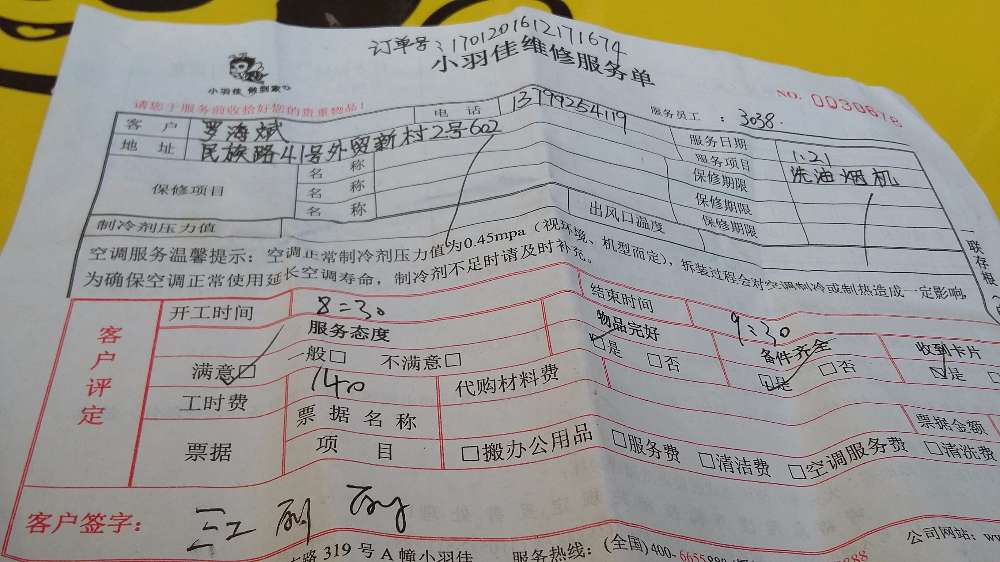 订单号:1701201612171674
小羽佳维修服务单
小羽佳 做到家
NO. 0030618
请您于服务前收拾好您的贵重物品!
客户 罗海斌 电话 13799254119 服务员工: 3038.
地址 民族路41号外贸新村2号602 服务日期 1.21
服务项目 洗油烟机
保修项目 名称 保修期限
名称 保修期限
名称 保修期限
制冷剂压力值 出风口温度
空调服务温馨提示:空调正常制冷剂压力值为0.45mpa(视环境、机型而定),拆装过程会对空调制冷或制热造成一定影响,
为确保空调正常使用延长空调寿命,制冷剂不足时请及时补充。
一联存根
客户评定
开工时间 8:30 结束时间 9:30
服务态度 物品完好 备件齐全 收到卡片
满意□ 一般□ 不满意□ □是 □否 □是 □否 □是
工时费 140 代购材料费
票据 票据名称 票据金额
项目 □搬办公用品 □服务费 □清洁费 □空调服务费 □清洗费
客户签字:
路319号A幢小羽佳 服务热线:(全国)400-6655 公司网站: